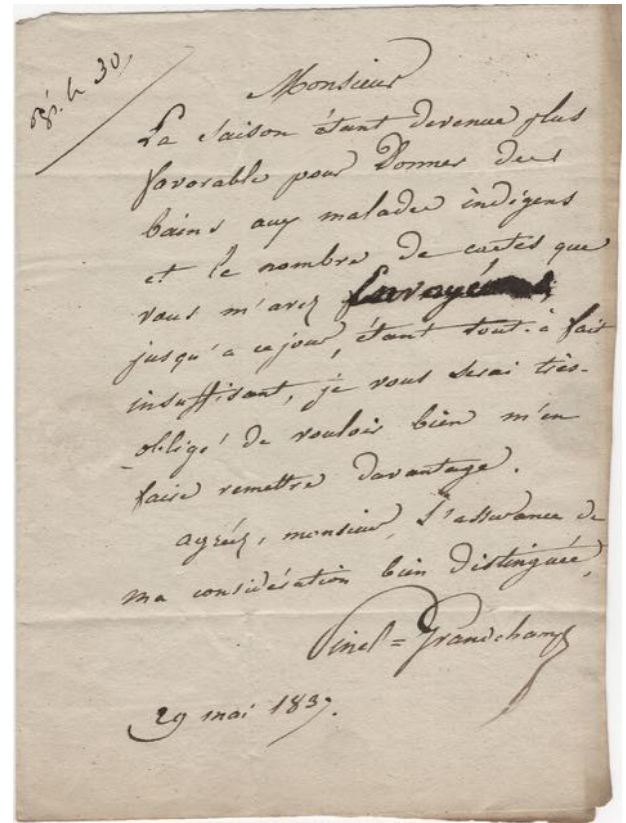 Rép. le 30,
Monsieur
La saison étant devenue plus
favorable pour Donner des
bains aux malades indigens
et le nombre de cartes que
vous m'avez Envoyées
jusqu'a ce jour, étant tout-à fait
insuffisant, je vous serai très-
obligé de vouloir bien m'en
faire remettre davantage.
agréez, monsieur, L'assurance de
ma considération bien Distinguée,
Pinel = Grandchamp
29 mai 1837.